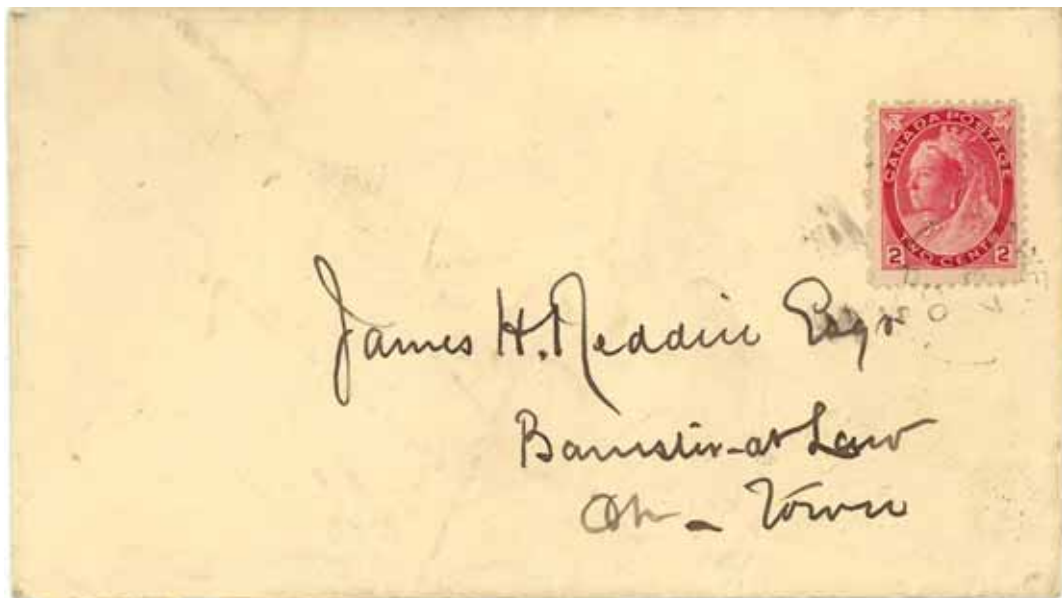 CANADA POSTAGE
2 TWO CENTS 2
James H. Reddin Esqr
Barrister-at Law
Ch - Town